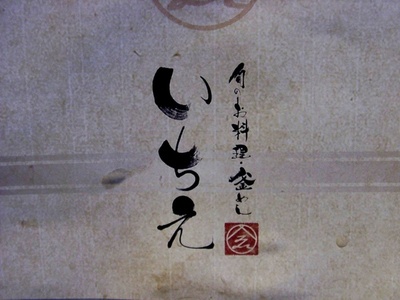 旬のお料理・釜めし
いち元